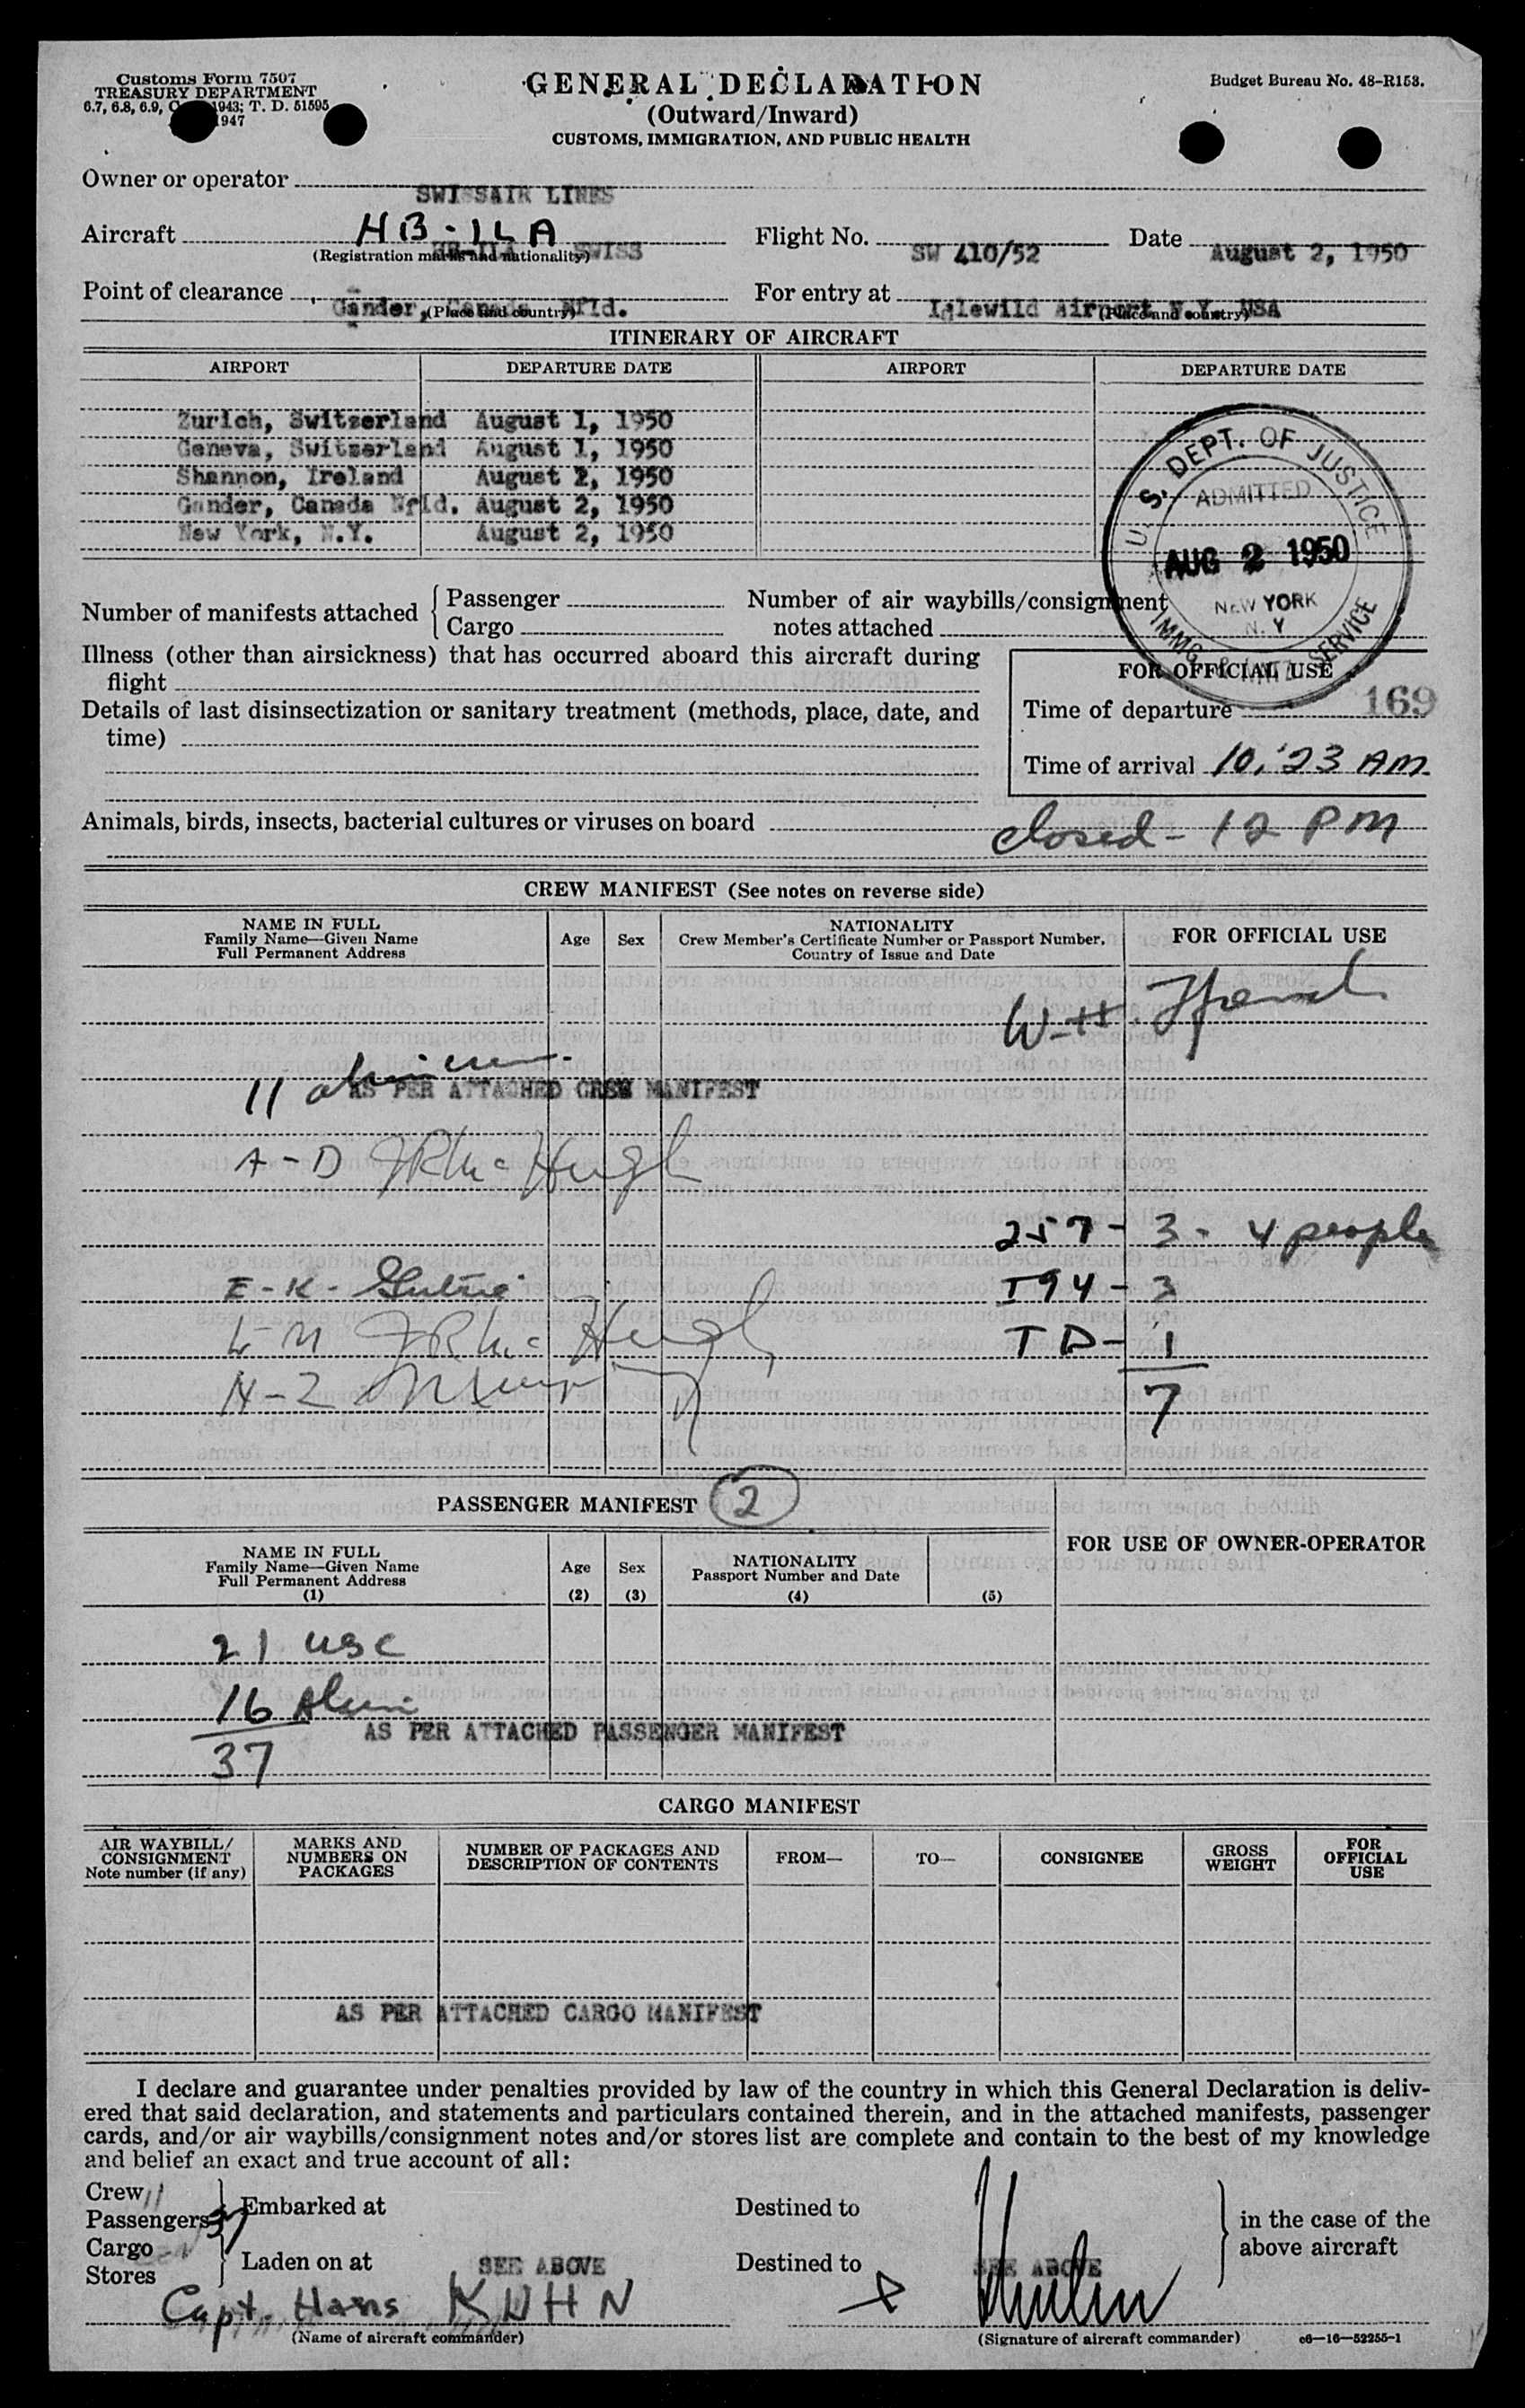 Customs Form 7507
TREASURY DEPARTMENT
6.7, 6.8, 6.9, 1943; T. D. 51595
1947
GENERAL DECLARATION
(Outward/Inward)
CUSTOMS, IMMIGRATION, AND PUBLIC HEALTH
Budget Bureau No. 48-R153.
Owner or operator SWISSAIR LINES
Aircraft HB-ILA HB-ILA SWISS Flight No. SW 410/52 Date August 2, 1950
(Registration marks and nationality)
Point of clearance Gander, Canada Nfld. For entry at Idlewild Airport N.Y. USA
(Place and country) (Place and country)
ITINERARY OF AIRCRAFT
AIRPORT DEPARTURE DATE AIRPORT DEPARTURE DATE
Zurich, Switzerland August 1, 1950
Geneva, Switzerland August 1, 1950
Shannon, Ireland August 2, 1950
Gander, Canada Nfld. August 2, 1950
New York, N.Y. August 2, 1950
U. S. DEPT. OF JUSTICE
ADMITTED
AUG 2 1950
NEW YORK
N. Y
IMMG. & NATZ. SERVICE
Number of manifests attached Passenger Number of air waybills/consignment
Cargo notes attached
Illness (other than airsickness) that has occurred aboard this aircraft during
flight
Details of last disinsectization or sanitary treatment (methods, place, date, and
time)
FOR OFFICIAL USE
Time of departure 169
Time of arrival 10:23 AM.
Animals, birds, insects, bacterial cultures or viruses on board closed - 12 PM
CREW MANIFEST (See notes on reverse side)
NAME IN FULL
Family Name—Given Name
Full Permanent Address
Age
Sex
NATIONALITY
Crew Member's Certificate Number or Passport Number,
Country of Issue and Date
FOR OFFICIAL USE
W. H.
11
AS PER ATTACHED CREW MANIFEST
A-D JR McHugh
257 - 3 - 4 people
E-K- I94 - 3
L-M JR McHugh TD - 1
N-Z 7
PASSENGER MANIFEST 2
NAME IN FULL
Family Name—Given Name
Full Permanent Address
(1)
Age
(2)
Sex
(3)
NATIONALITY
Passport Number and Date
(4)
(5)
FOR USE OF OWNER-OPERATOR
21 USC
16 Alien
AS PER ATTACHED PASSENGER MANIFEST
37
CARGO MANIFEST
AIR WAYBILL/
CONSIGNMENT
Note number (if any)
MARKS AND
NUMBERS ON
PACKAGES
NUMBER OF PACKAGES AND
DESCRIPTION OF CONTENTS
FROM—
TO—
CONSIGNEE
GROSS
WEIGHT
FOR
OFFICIAL
USE
AS PER ATTACHED CARGO MANIFEST
I declare and guarantee under penalties provided by law of the country in which this General Declaration is deliv-
ered that said declaration, and statements and particulars contained therein, and in the attached manifests, passenger
cards, and/or air waybills/consignment notes and/or stores list are complete and contain to the best of my knowledge
and belief an exact and true account of all:
Crew 11
Passengers 37 Embarked at Destined to in the case of the
Cargo above aircraft
Stores Laden on at SEE ABOVE Destined to SEE ABOVE
Capt. Hans KUHN
(Name of aircraft commander) (Signature of aircraft commander) c6—16—52255-1